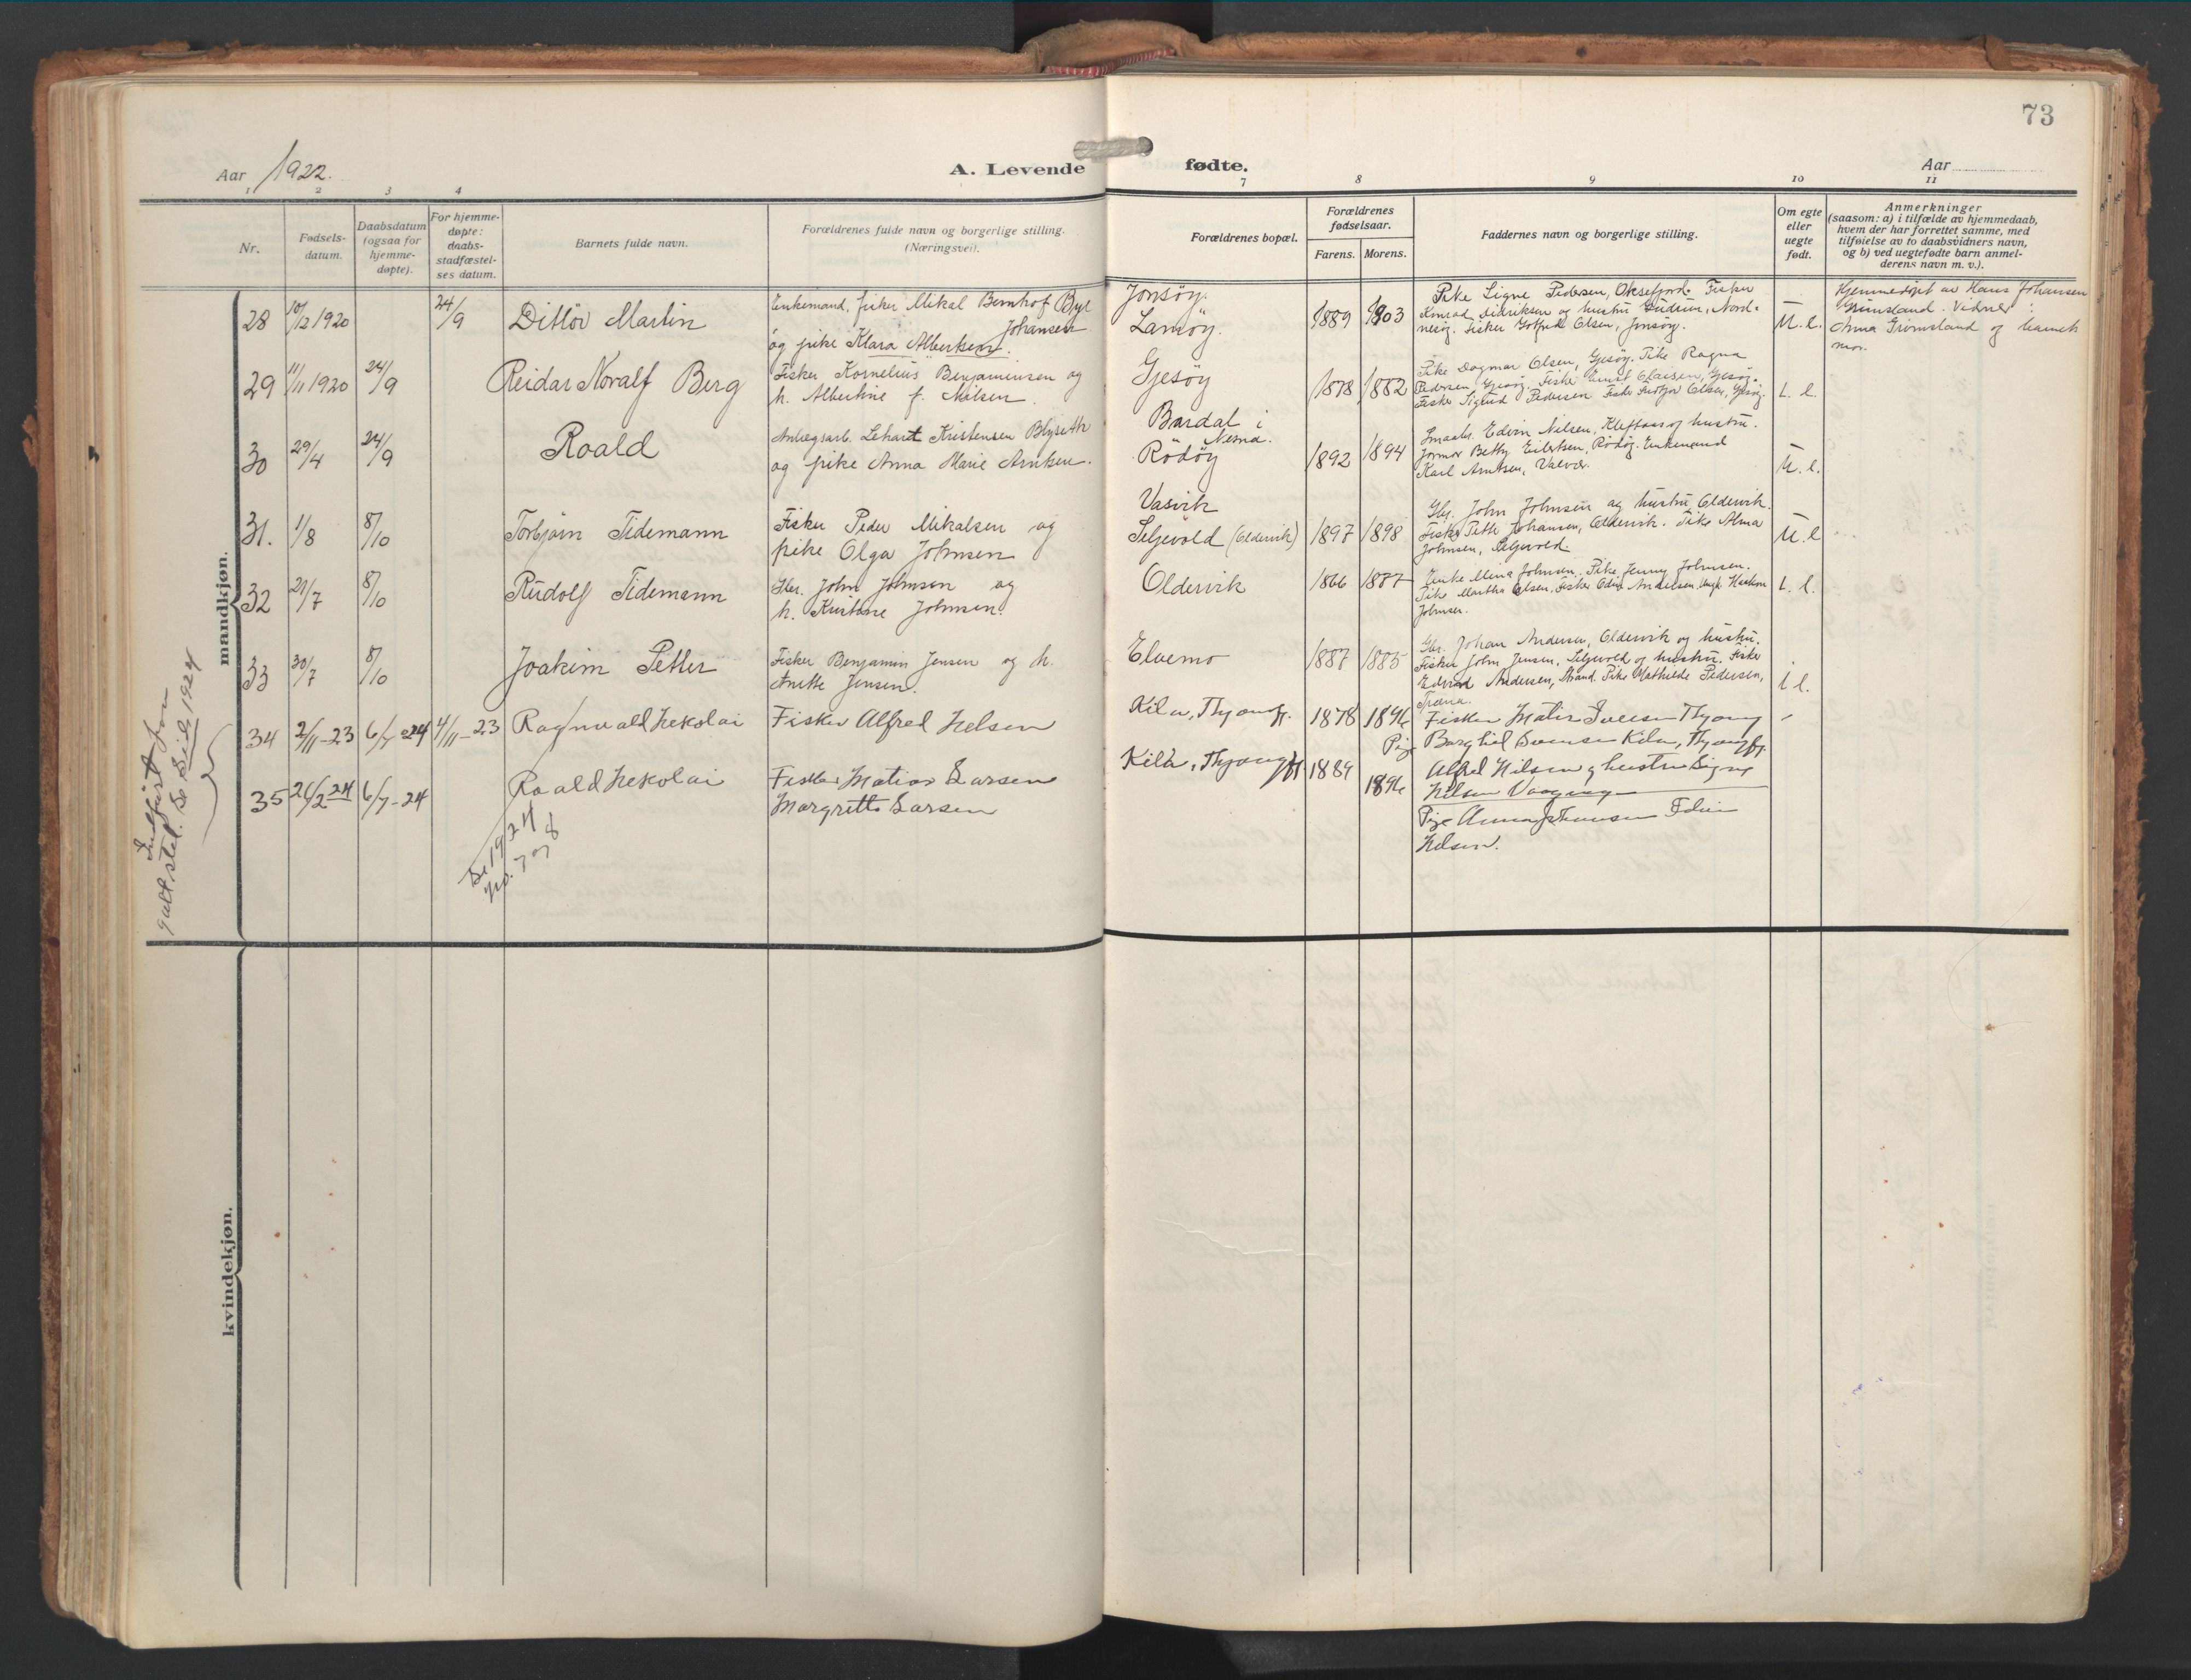 73
Aar 1922.
A. Levende fødte.
Aar
1 2 3 4 7 8 9 10 11
Nr.
Fødsels-
datum.
Daabsdatum
(ogsaa for
hjemme-
døpte).
For hjemme-
døpte:
daabs-
stadfæstel-
ses datum.
Barnets fulde navn.
Forældrenes fulde navn og borgerlige stilling.
(Næringsvei).
Forældrenes bopæl.
Forældrenes
fødselsaar.
Farens. Morens.
Faddernes navn og borgerlige stilling.
Om egte
eller
uegte
født.
Anmerkninger
(saasom: a) i tilfælde av hjemmedaab,
hvem der har forrettet samme, med
tilføielse av to daabsvidners navn,
og b) ved uegtefødte barn anmel-
derens navn m. v.).
mandkjøn.
28 10/12 1920 24/9 Ditløv Martin
Enkemand, fisker Mikal Bernhof Bye
Johansen
og pike Klara Albertsen.
Jonsøy.
Lamøy.
1889 1903
Pike Signe Pedersen, Oksefjord. Fisker
Konrad Didriksen og hustru Gudrun, Nord-
nesøy. Fisker Gotfred Olsen, Jonsøy.
U. e.
Hjemmedøpt av Hans Johansen
Grimsland. Vidner:
Anna Grimsland og barnets
mor.
29 11/11 1920 24/9 Reidar Noralf Berg
Fisker Kornelius Benjaminsen og
h. Albertine f. Nilsen.
Gjesøy
1878 1882
Pike Dagmar Olsen, Gjesøy. Pike Ragna
Pedersen, Gjesøy. Fisker Ernst Olaisen, Gjesøy.
Fisker Sigurd Pedersen Fisker Fridtjof Olsen, Gjesøy.
L. e.
30 29/4 24/9 Roald
Anlægsarb. Lehard Kristensen Blyseth
og pike Anna Marie Arntsen.
Bardal i
Nesna.
Rödöy
1892 1894
Smaabr. Edvin Nilsen, Kleftaas og hustru.
Jormor Betty Eilertsen, Rödöy. Enkemand
Karl Arntsen, Valvær.
U. e.
31. 1/8 8/10 Torbjörn Tidemann
Fisker Peder Mikalsen og
pike Olga Johnsen
Vasvik
Seljevold (Oldervik)
1897 1898
Gbr. John Johnsen og hustru, Oldervik.
Fisker Petter Johansen, Oldervik. Pike Alma
Johnsen, Seljevold
U. e
32 21/7 8/10 Rudolf Tidemann
Gbr. John Johnsen og
h. Kristine Johnsen.
Oldervik
1866 1887
Enke Mina Johnsen. Pike Jenny Johnsen.
Pike Martha Olsen, Fisker Odin Andersen, Ungk. Haakon
Johnsen.
L. e.
33 30/7 8/10 Joakim Petter
Fisker Benjamin Jensen og h.
Anette Jensen.
Elvemo
1887 1885
Gbr. Johan Andersen, Oldervik og hustru.
Fisker John Jensen, Seljevold og hustru. Fisker
Edvard Andersen, Strand. Pike Mathilde Pedersen,
Træna.
L e.
34 2/11-23 6/7-24 4/11-23 Ragnvald Nekolai
Fisker Alfred Nelsen
Kila, Thjongfj.
1878 1896
Fisker Matis Svensen Thjong
Pige Borghil Svensen Kila, Thjongfj.
35 26/2 24 6/7-24 Roald Nekolai
Fisker Matias Larsen
Margrette Larsen
Kila, Thjongfj.
1889 1896
Alfred Nilsen og hustru Signe
Nelsen Vaagen
Pige Anna Johansen Edvin
Nelsen.
Se 1924
No. 7 og 8
Indført paa
galt sted. Se Side 1924
kvindekjøn.